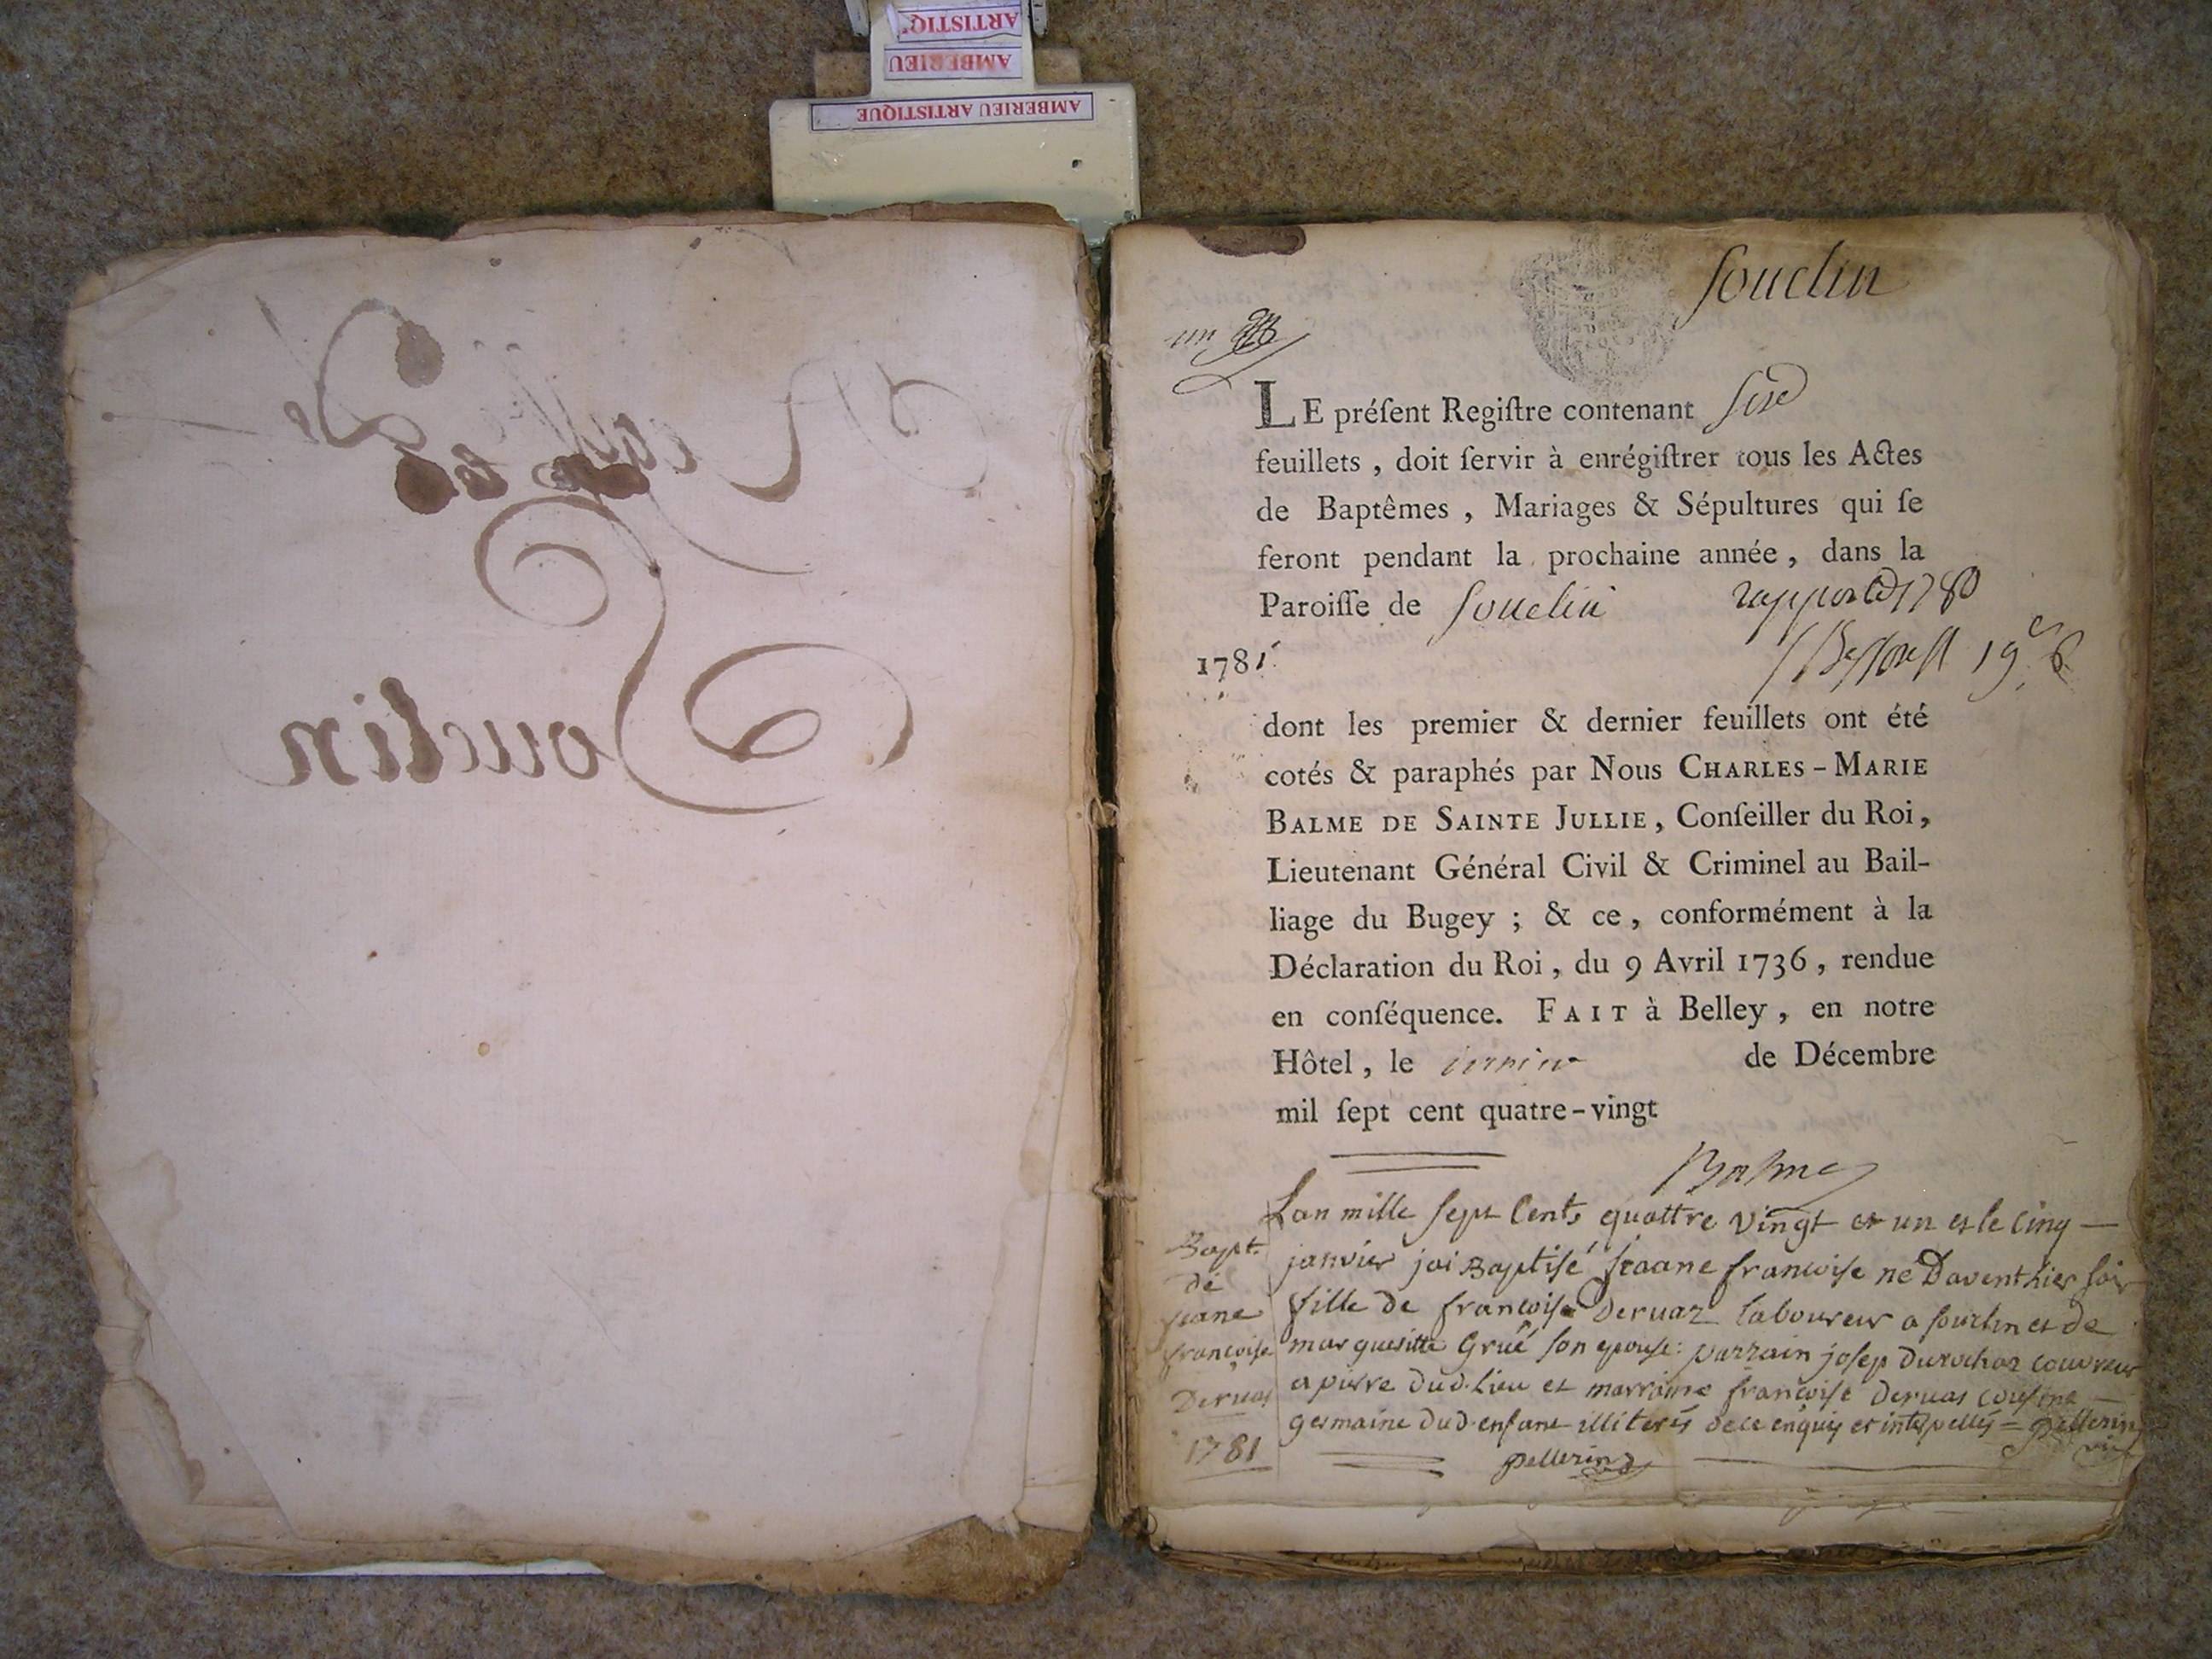 ARTISTIQ'
AMBERIEU
AMBERIEU ARTISTIQUE
Souclin
Souclin
un
LE préſent Regiſtre contenant
feuillets , doit ſervir à enrégiſtrer tous les Actes
de Baptêmes , Mariages & Sépultures qui ſe
feront pendant la prochaine année , dans la
Paroiſſe de Souclin
1781
dont les premier & dernier feuillets ont été
cotés & paraphés par Nous CHARLES-MARIE
BALME DE SAINTE JULLIE, Conſeiller du Roi,
Lieutenant Général Civil & Criminel au Bail-
liage du Bugey ; & ce, conformément à la
Déclaration du Roi, du 9 Avril 1736, rendue
en conſéquence. FAIT à Belley, en notre
Hôtel, le de Décembre
mil ſept cent quatre-vingt
Balme
Bapt.
de
jeane
françoise
Deruas
1781
Lan mille sept Cents quattre vingt et un et le Cinq
janvier jai Baptisé jeaane francoise né Davent hier soir
fille de francoise Deruaz laboureur a souclin et de
marguesitte Gruë son epouse: parrain josep Durochat couvreur
a pierre dud. lieu et marraine francoise Deruas cousine
germaine dud. enfant illiterés de ce enquis et interpellés = pellerin
pellerin